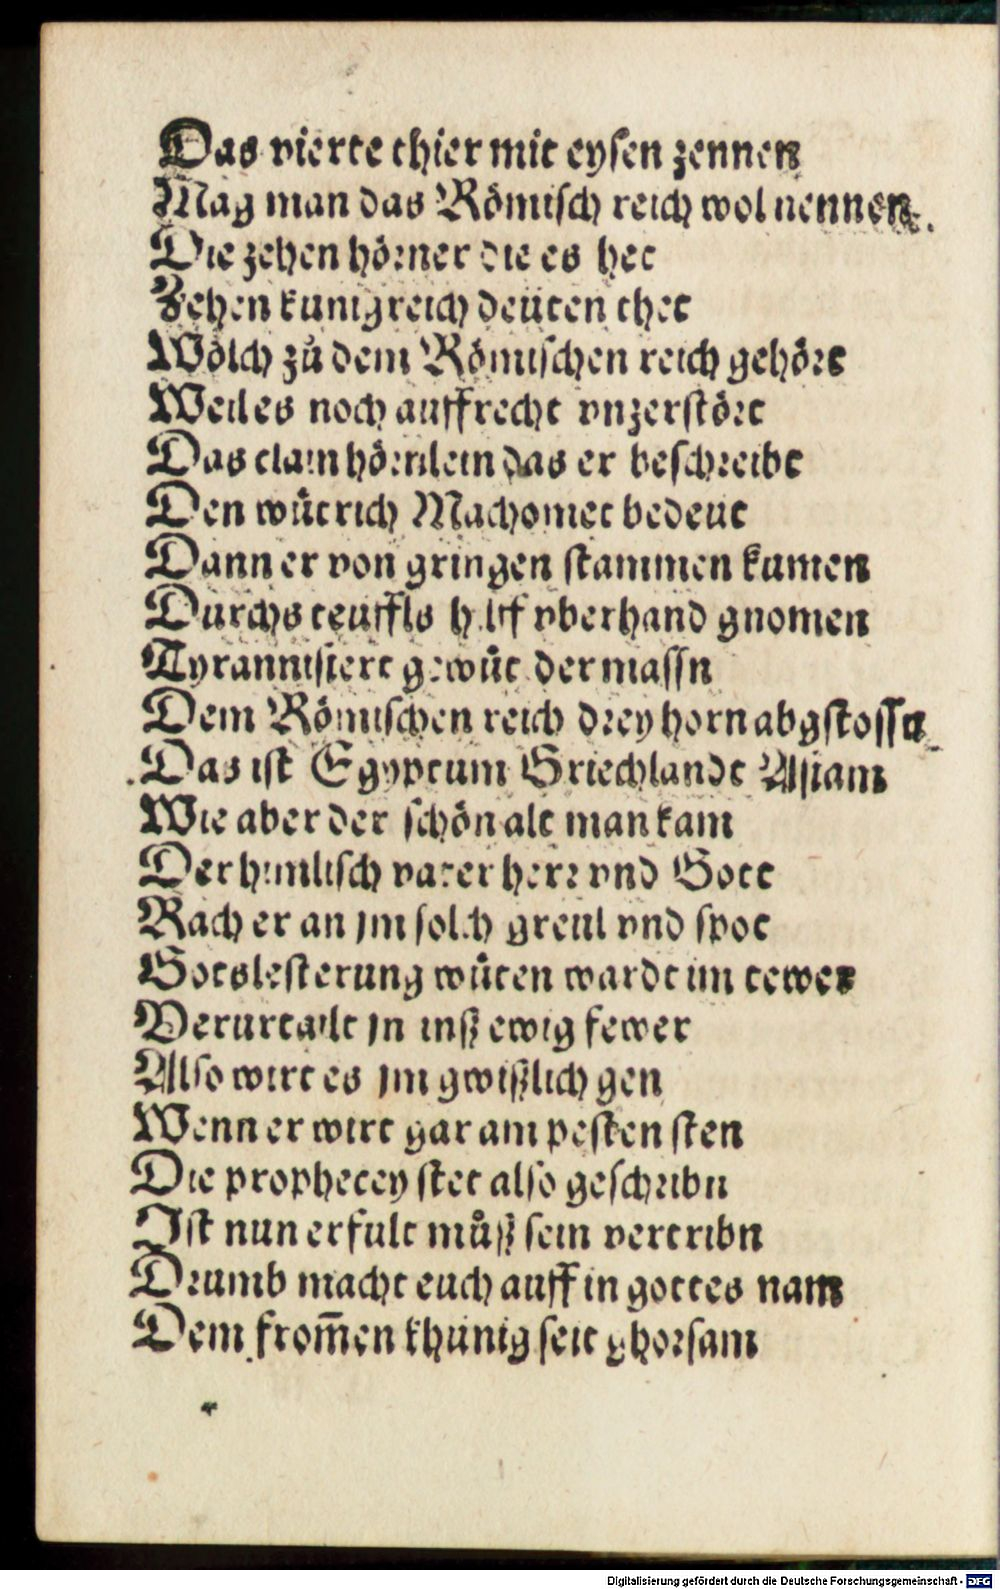 Das vierte thier mit eysen zennen
Mag man das Römisch reich wol nennen.
Die zehen hörner die es het
Zehen kunigreich deüten thet
Wölch zů dem Römischen reich gehört
Weil es noch auffrecht vnzerstört
Das clain hörnlein das er beschreibt
Den wütrich Machomet bedeut
Dann er von gringen stammen kumen
Durchs teuffls hilff vberhand gnomen
Tyrannisiert gewüt der massn
Dem Römischen reich drey horn abgstossn
Das ist Egyptum Griechlandt Asiam
Wie aber der schön alt man kam
Der himlisch vater herr vnd Gott
Rach er an jm solch greul vnd spot
Gotslesterung wüten wardt im tewer
Verurtailt jn inß ewig fewer
Also wirt es jm gwißlich gen
Wenn er wirt gar am pesten sten
Die prophecey stet also geschribn
Ist nun erfult můß sein vertribn
Drumb macht euch auff in gottes nam
Dem from̃en khunig seit ghorsam
Digitalisierung gefördert durch die Deutsche Forschungsgemeinschaft - DFG